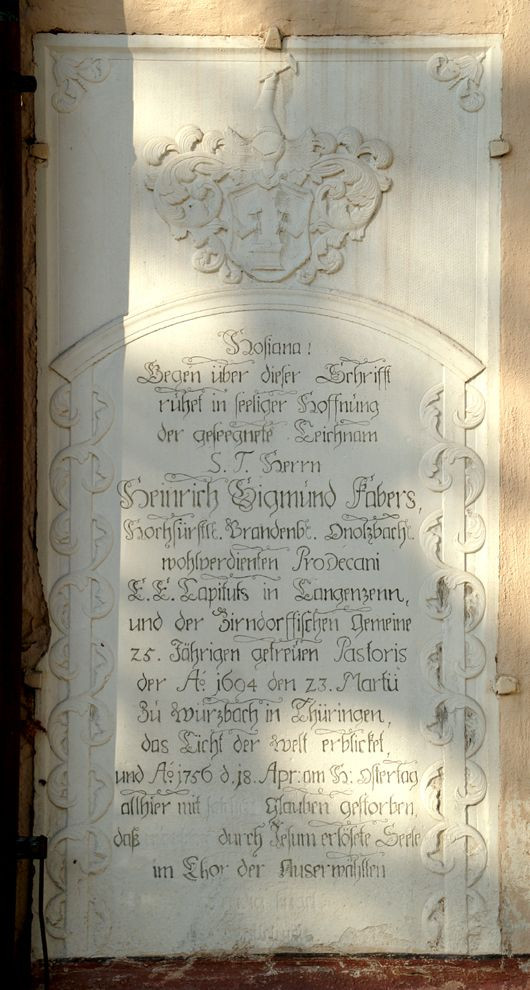 Hosiana!
Gegen über dieser Schrifft
ruhet in seeliger Hoffnung
der geseegnete Leichnam
S. T. Herrn
Heinrich Sigmund Fabers,
Hochfürstl. Brandenbl. Onolzbachl.
wohlverdienten ProDecani
E. E. Capituls in Langenzenn,
und der Zirndorffischen Gemeine
25. Jährigen getreuen Pastoris
der Ao. 1694 den 23. Martii
Zu Wurzbach in Thüringen,
das Licht der Welt erblicket,
und Ao. 1756 d. 18. Apr. am H. Ostertag
allhier mit Glauben gestorben,
daß durch Jesum erlösete Seele
im Chor der Auserwählten